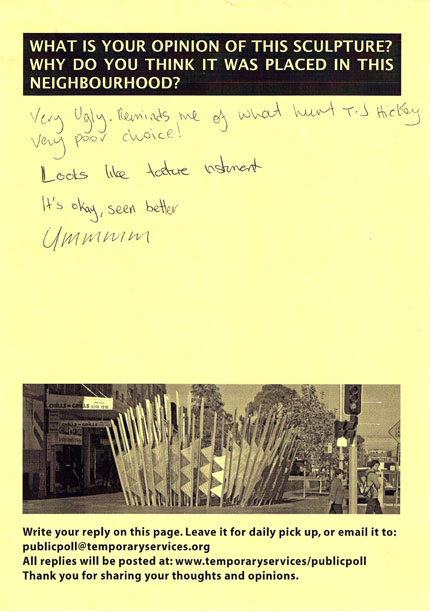 WHAT IS YOUR OPINION OF THIS SCULPTURE?
WHY DO YOU THINK IT WAS PLACED IN THIS
NEIGHBOURHOOD?
Very Ugly. Reminds me of what hurt T.J Hickey
Very poor choice!
Looks like
It's okay, seen better
Ummmmm
CHILLS N GRILLS
CHILLS N GRILLS
Write your reply on this page. Leave it for daily pick up, or email it to:
publicpoll@temporaryservices.org
All replies will be posted at: www.temporaryservices/publicpoll
Thank you for sharing your thoughts and opinions.